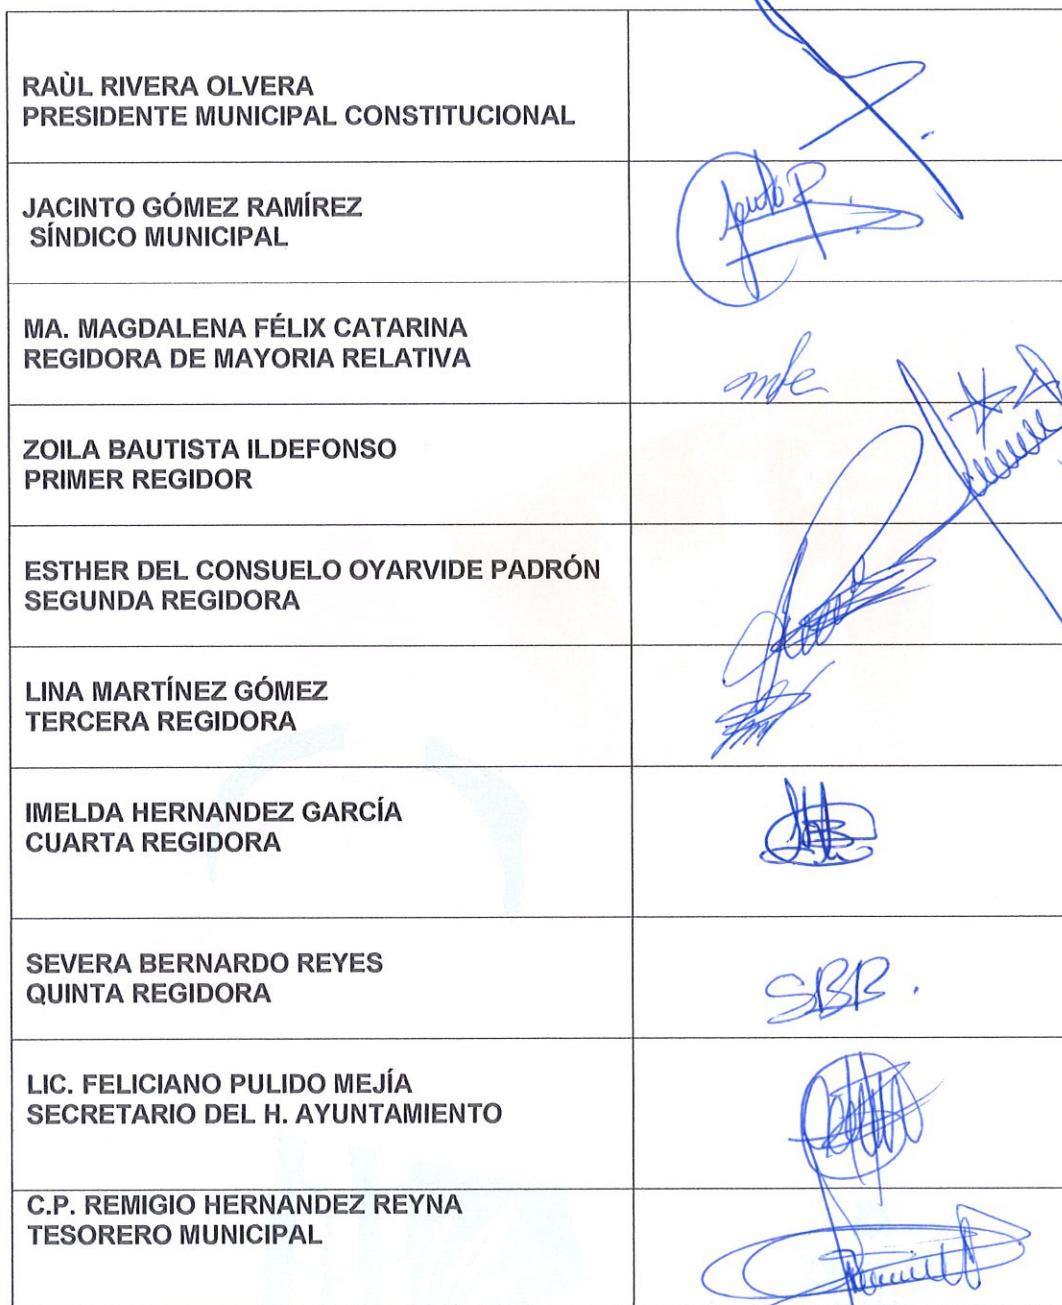 RAÙL RIVERA OLVERA
PRESIDENTE MUNICIPAL CONSTITUCIONAL
JACINTO GÓMEZ RAMÍREZ
SÍNDICO MUNICIPAL
MA. MAGDALENA FÉLIX CATARINA
REGIDORA DE MAYORIA RELATIVA
mfc
ZOILA BAUTISTA ILDEFONSO
PRIMER REGIDOR
ESTHER DEL CONSUELO OYARVIDE PADRÓN
SEGUNDA REGIDORA
LINA MARTÍNEZ GÓMEZ
TERCERA REGIDORA
IMELDA HERNANDEZ GARCÍA
CUARTA REGIDORA
SEVERA BERNARDO REYES
QUINTA REGIDORA
SBR.
LIC. FELICIANO PULIDO MEJÍA
SECRETARIO DEL H. AYUNTAMIENTO
C.P. REMIGIO HERNANDEZ REYNA
TESORERO MUNICIPAL